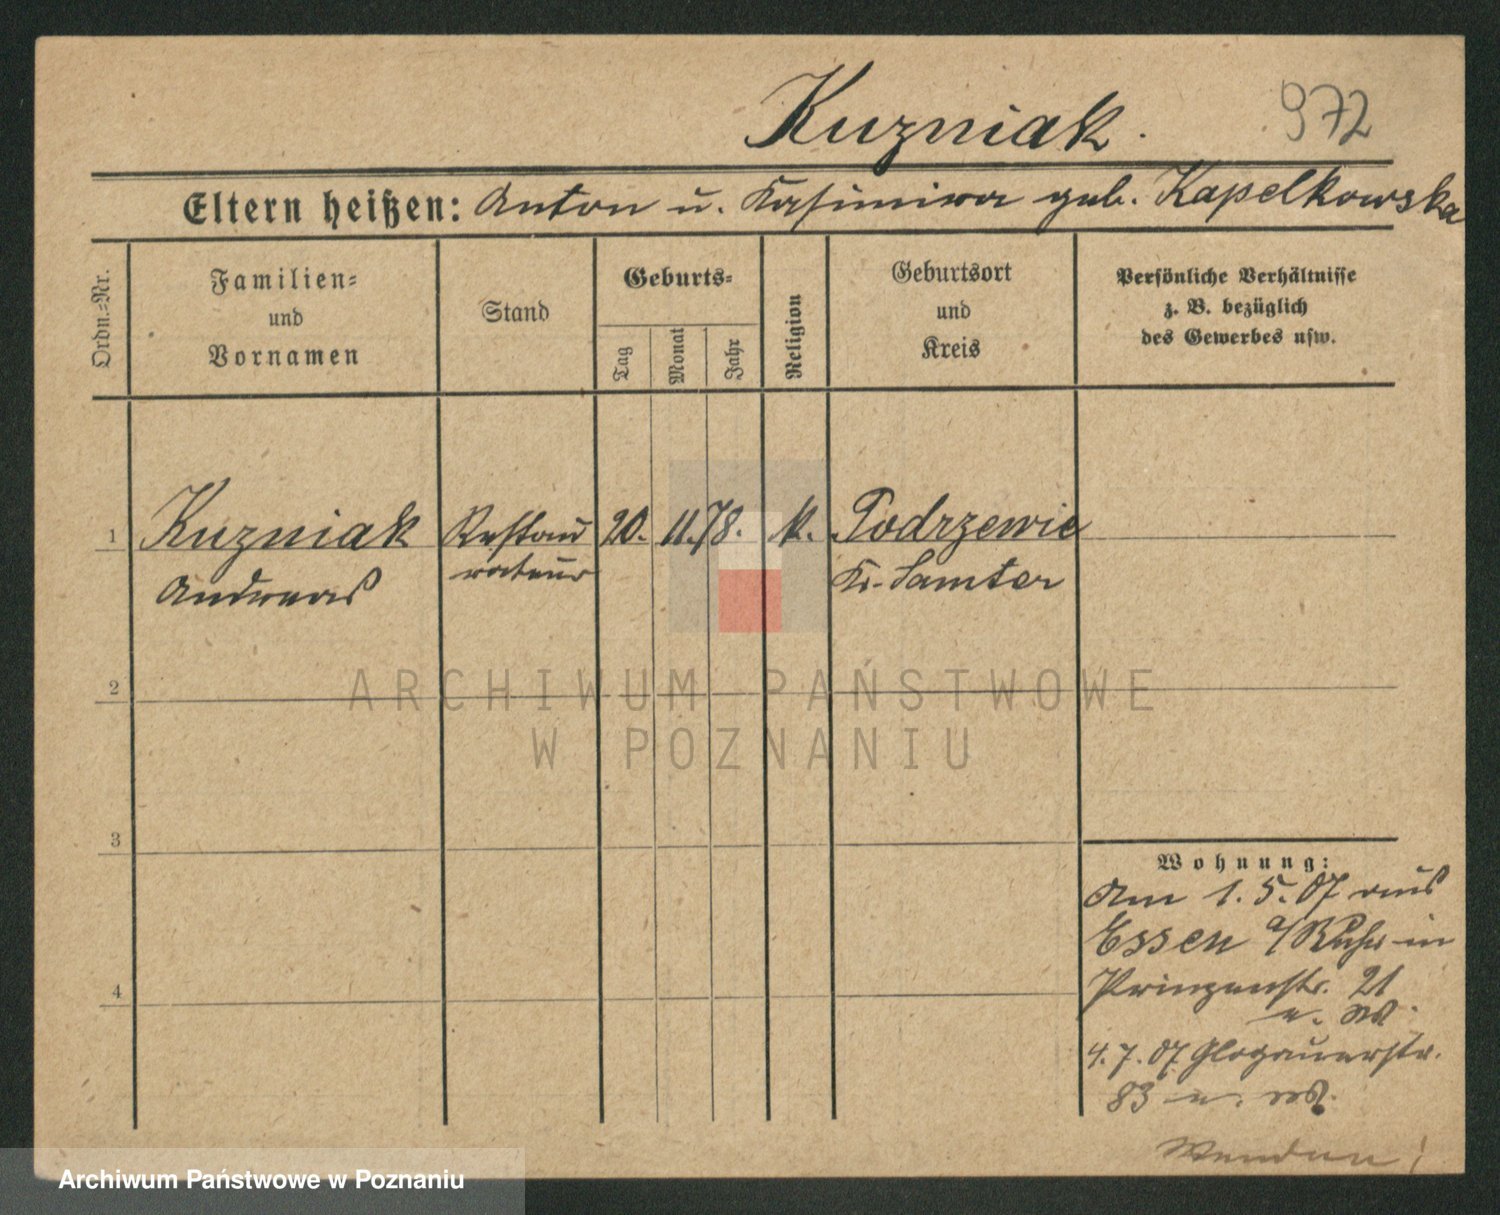 Kuzniak.
972
Eltern heißen: Anton u. Kasimira geb. Kapelkowska
Ordn.=Nr.
Familien=
und
Vornamen
Stand
Geburts=
Tag
Monat
Jahr
Religion
Geburtsort
und
Kreis
Persönliche Verhältnisse
z. B. bezüglich
des Gewerbes usw.
1
Kuzniak
Andreas
Restau
rateur
20. 11. 78.
k.
Podrzewie
Kr. Samter
2
ARCHIWUM PAŃSTWOWE
W POZNANIU
3
4
Wohnung:
Am 1. 5. 07 aus
Essen a/Ruhr in
Prinzenstr. 21
4. 7. 07 Glogauerstr.
83
Wenden!
Archiwum Państwowe w Poznaniu